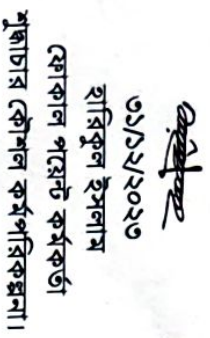 ৩১/১২/২০২৩
হারিকুল ইসলাম
ফোকাল পয়েন্ট কর্মকর্তা
শুদ্ধাচার কৌশল কর্মপরিকল্পনা।